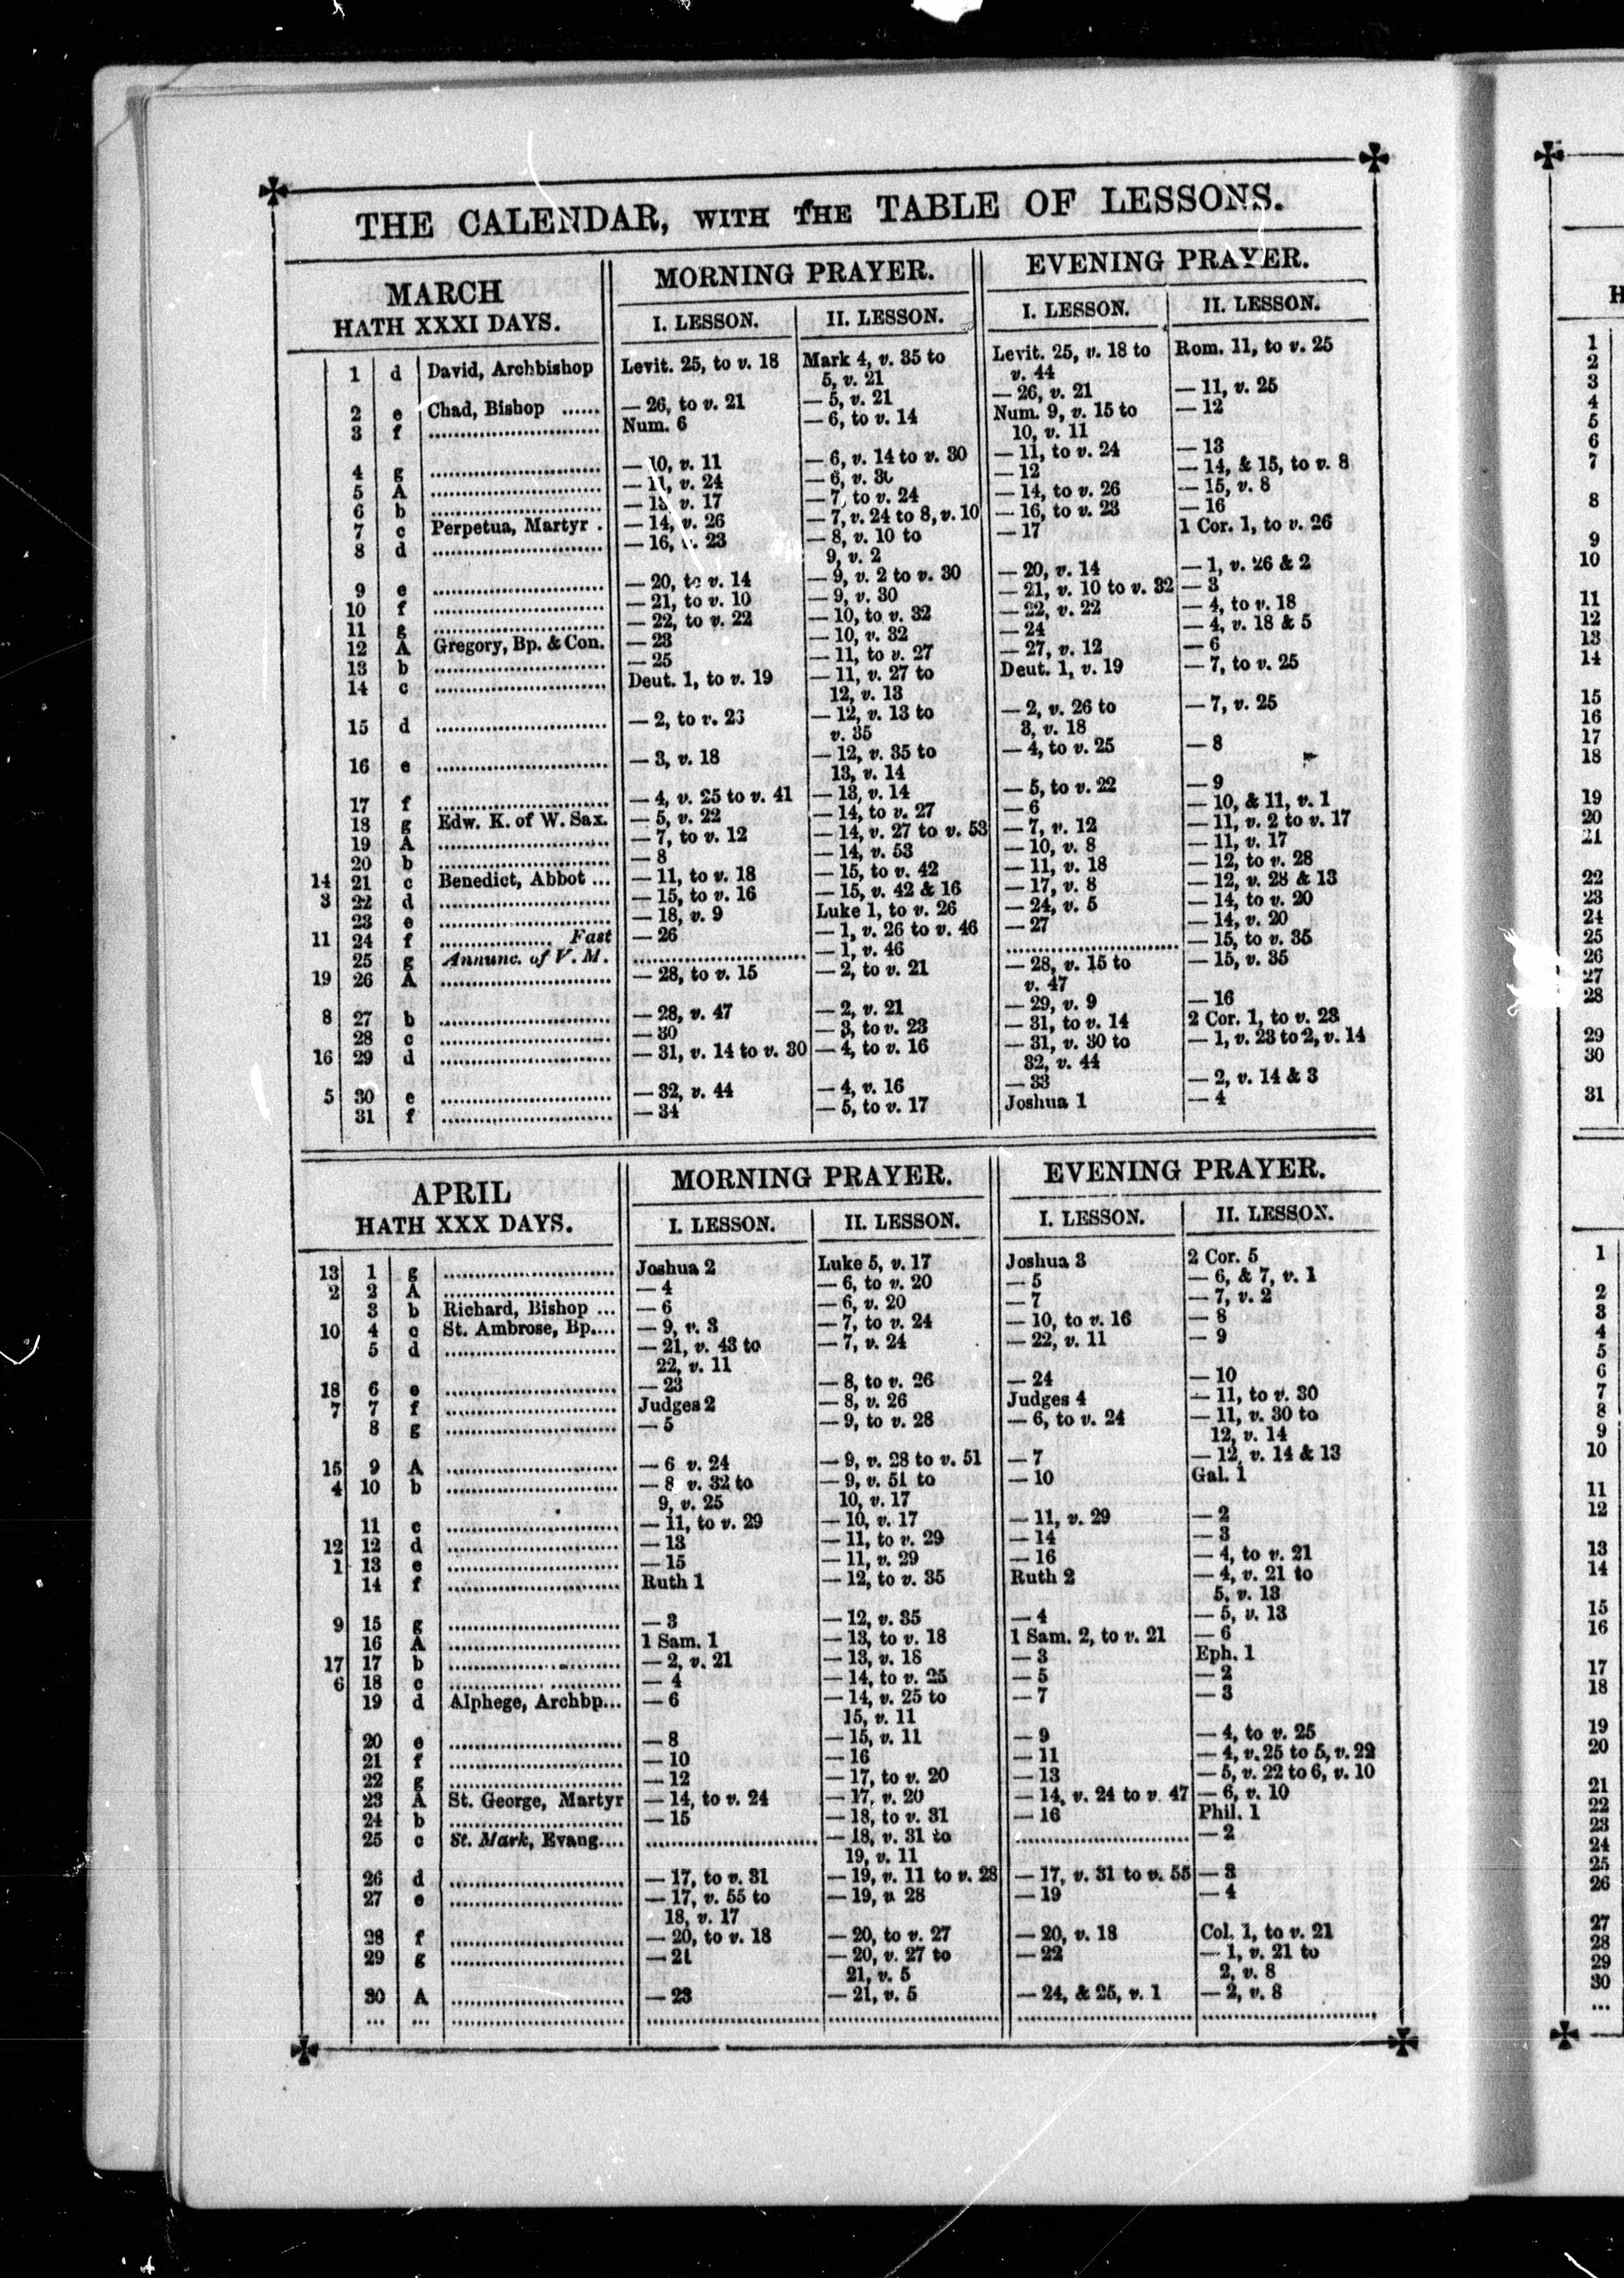 THE CALENDAR, WITH THE TABLE OF LESSONS.
MARCH HATH XXXI DAYS. MORNING PRAYER. EVENING PRAYER.
I. LESSON. II. LESSON. I. LESSON. II. LESSON.
1 d David, Archbishop Levit. 25, to v. 18 Mark 4, v. 35 to 5, v. 21 Levit. 25, v. 18 to v. 44 Rom. 11, to v. 25
2 e Chad, Bishop ...... — 26, to v. 21 — 5, v. 21 — 26, v. 21 — 11, v. 25
3 f ...... Num. 6 — 6, to v. 14 Num. 9, v. 15 to 10, v. 11 — 12
4 g ...... — 10, v. 11 — 6, v. 14 to v. 30 — 11, to v. 24 — 13
5 A ...... — 11, v. 24 — 6, v. 30 — 12 — 14, & 15, to v. 8
6 b ...... — 13, v. 17 — 7, to v. 24 — 14, to v. 26 — 15, v. 8
7 c Perpetua, Martyr . — 14, v. 26 — 7, v. 24 to 8, v. 10 — 16, to v. 23 — 16
8 d ...... — 16, v. 23 — 8, v. 10 to 9, v. 2 — 17 1 Cor. 1, to v. 26
9 e ...... — 20, to v. 14 — 9, v. 2 to v. 30 — 20, v. 14 — 1, v. 26 & 2
10 f ...... — 21, to v. 10 — 9, v. 30 — 21, v. 10 to v. 32 — 3
11 g ...... — 22, to v. 22 — 10, to v. 32 — 22, v. 22 — 4, to v. 18
12 A Gregory, Bp. & Con. — 23 — 10, v. 32 — 24 — 4, v. 18 & 5
13 b ...... — 25 — 11, to v. 27 — 27, v. 12 — 6
14 c ...... Deut. 1, to v. 19 — 11, v. 27 to 12, v. 13 Deut. 1, v. 19 — 7, to v. 25
15 d ...... — 2, to v. 26 — 12, v. 13 to v. 35 — 2, v. 26 to 3, v. 18 — 7, v. 25
16 e ...... — 3, v. 18 — 12, v. 35 to 13, v. 14 — 4, to v. 25 — 8
17 f ...... — 4, v. 25 to v. 41 — 13, v. 14 — 5, to v. 22 — 9
18 g Edw. K. of W. Sax. — 5, v. 22 — 14, to v. 27 — 6 — 10, & 11, v. 1
19 A ...... — 7, to v. 12 — 14, v. 27 to v. 53 — 7, v. 12 — 11, v. 2 to v. 17
20 b ...... — 8 — 14, v. 53 — 10, v. 8 — 11, v. 17
14 21 c Benedict, Abbot ... — 11, to v. 18 — 15, to v. 42 — 11, v. 18 — 12, to v. 28
3 22 d ...... — 15, to v. 16 — 15, v. 42 & 16 — 17, v. 8 — 12, v. 28 & 13
23 e ...... — 18, v. 9 Luke 1, to v. 26 — 24, v. 5 — 14, to v. 20
11 24 f ...... Fast — 26 — 1, v. 26 to v. 46 — 27 — 14, v. 20
25 g Annunc. of V. M. ...... — 1, v. 46 ...... — 15, to v. 35
19 26 A ...... — 28, to v. 15 — 2, to v. 21 — 28, v. 15 to v. 47 — 15, v. 35
8 27 b ...... — 28, v. 47 — 2, v. 21 — 29, v. 9 — 16
28 c ...... — 30 — 3, to v. 23 — 31, to v. 14 2 Cor. 1, to v. 23
16 29 d ...... — 31, v. 14 to v. 30 — 4, to v. 16 — 31, v. 30 to 32, v. 44 — 1, v. 23 to 2, v. 14
5 30 e ...... — 32, v. 44 — 4, v. 16 — 33 — 2, v. 14 & 3
31 f ...... — 34 — 5, to v. 17 Joshua 1 — 4
APRIL HATH XXX DAYS. MORNING PRAYER. EVENING PRAYER.
I. LESSON. II. LESSON. I. LESSON. II. LESSON.
13 1 g ...... Joshua 2 Luke 5, v. 17 Joshua 3 2 Cor. 5
2 2 A ...... — 4 — 6, to v. 20 — 5 — 6, & 7, v. 1
3 b Richard, Bishop ... — 6 — 6, v. 20 — 7 — 7, v. 2
10 4 c St. Ambrose, Bp.... — 9, v. 3 — 7, to v. 24 — 10, to v. 16 — 8
5 d ...... — 21, v. 43 to 22, v. 11 — 7, v. 24 — 22, v. 11 — 9
18 6 e ...... — 23 — 8, to v. 26 — 24 — 10
7 7 f ...... Judges 2 — 8, v. 26 Judges 4 — 11, to v. 30
8 g ...... — 5 — 9, to v. 28 — 6, to v. 24 — 11, v. 30 to 12, v. 14
15 9 A ...... — 6 v. 24 — 9, v. 28 to v. 51 — 7 — 12, v. 14 & 13
4 10 b ...... — 8 v. 32 to 9, v. 25 — 9, v. 51 to 10, v. 17 — 10 Gal. 1
11 c ...... — 11, to v. 29 — 10, v. 17 — 11, v. 29 — 2
12 12 d ...... — 13 — 11, to v. 29 — 14 — 3
1 13 e ...... — 15 — 11, v. 29 — 16 — 4, to v. 21
14 f ...... Ruth 1 — 12, to v. 35 Ruth 2 — 4, v. 21 to 5, v. 13
9 15 g ...... — 3 — 12, v. 35 — 4 — 5, v. 13
16 A ...... 1 Sam. 1 — 13, to v. 18 1 Sam. 2, to v. 21 — 6
17 17 b ...... — 2, v. 21 — 13, v. 18 — 3 Eph. 1
6 18 c ...... — 4 — 14, to v. 25 — 5 — 2
19 d Alphege, Archbp... — 6 — 14, v. 25 to 15, v. 11 — 7 — 3
20 e ...... — 8 — 15, v. 11 — 9 — 4, to v. 25
21 f ...... — 10 — 16 — 11 — 4, v. 25 to 5, v. 22
22 g ...... — 12 — 17, to v. 20 — 13 — 5, v. 22 to 6, v. 10
23 A St. George, Martyr — 14, to v. 24 — 17, v. 20 — 14, v. 24 to v. 47 — 6, v. 10
24 b ...... — 15 — 18, to v. 31 — 16 Phil. 1
25 c St. Mark, Evang.... ...... — 18, v. 31 to 19, v. 11 ...... — 2
26 d ...... — 17, to v. 31 — 19, v. 11 to v. 28 — 17, v. 31 to v. 55 — 3
27 e ...... — 17, v. 55 to 18, v. 17 — 19, v. 28 — 19 — 4
28 f ...... — 20, to v. 18 — 20, to v. 27 — 20, v. 18 Col. 1, to v. 21
29 g ...... — 21 — 20, v. 27 to 21, v. 5 — 22 — 1, v. 21 to 2, v. 8
30 A ...... — 23 — 21, v. 5 — 24, & 25, v. 1 — 2, v. 8
... ... ......
H
1
2
3
4
5
6
7
8
9
10
11
12
13
14
15
16
17
18
19
20
21
22
23
24
25
26
27
28
29
30
31
1
2
3
4
5
6
7
8
9
10
11
12
13
14
15
16
17
18
19
20
21
22
23
24
25
26
27
28
29
30
...